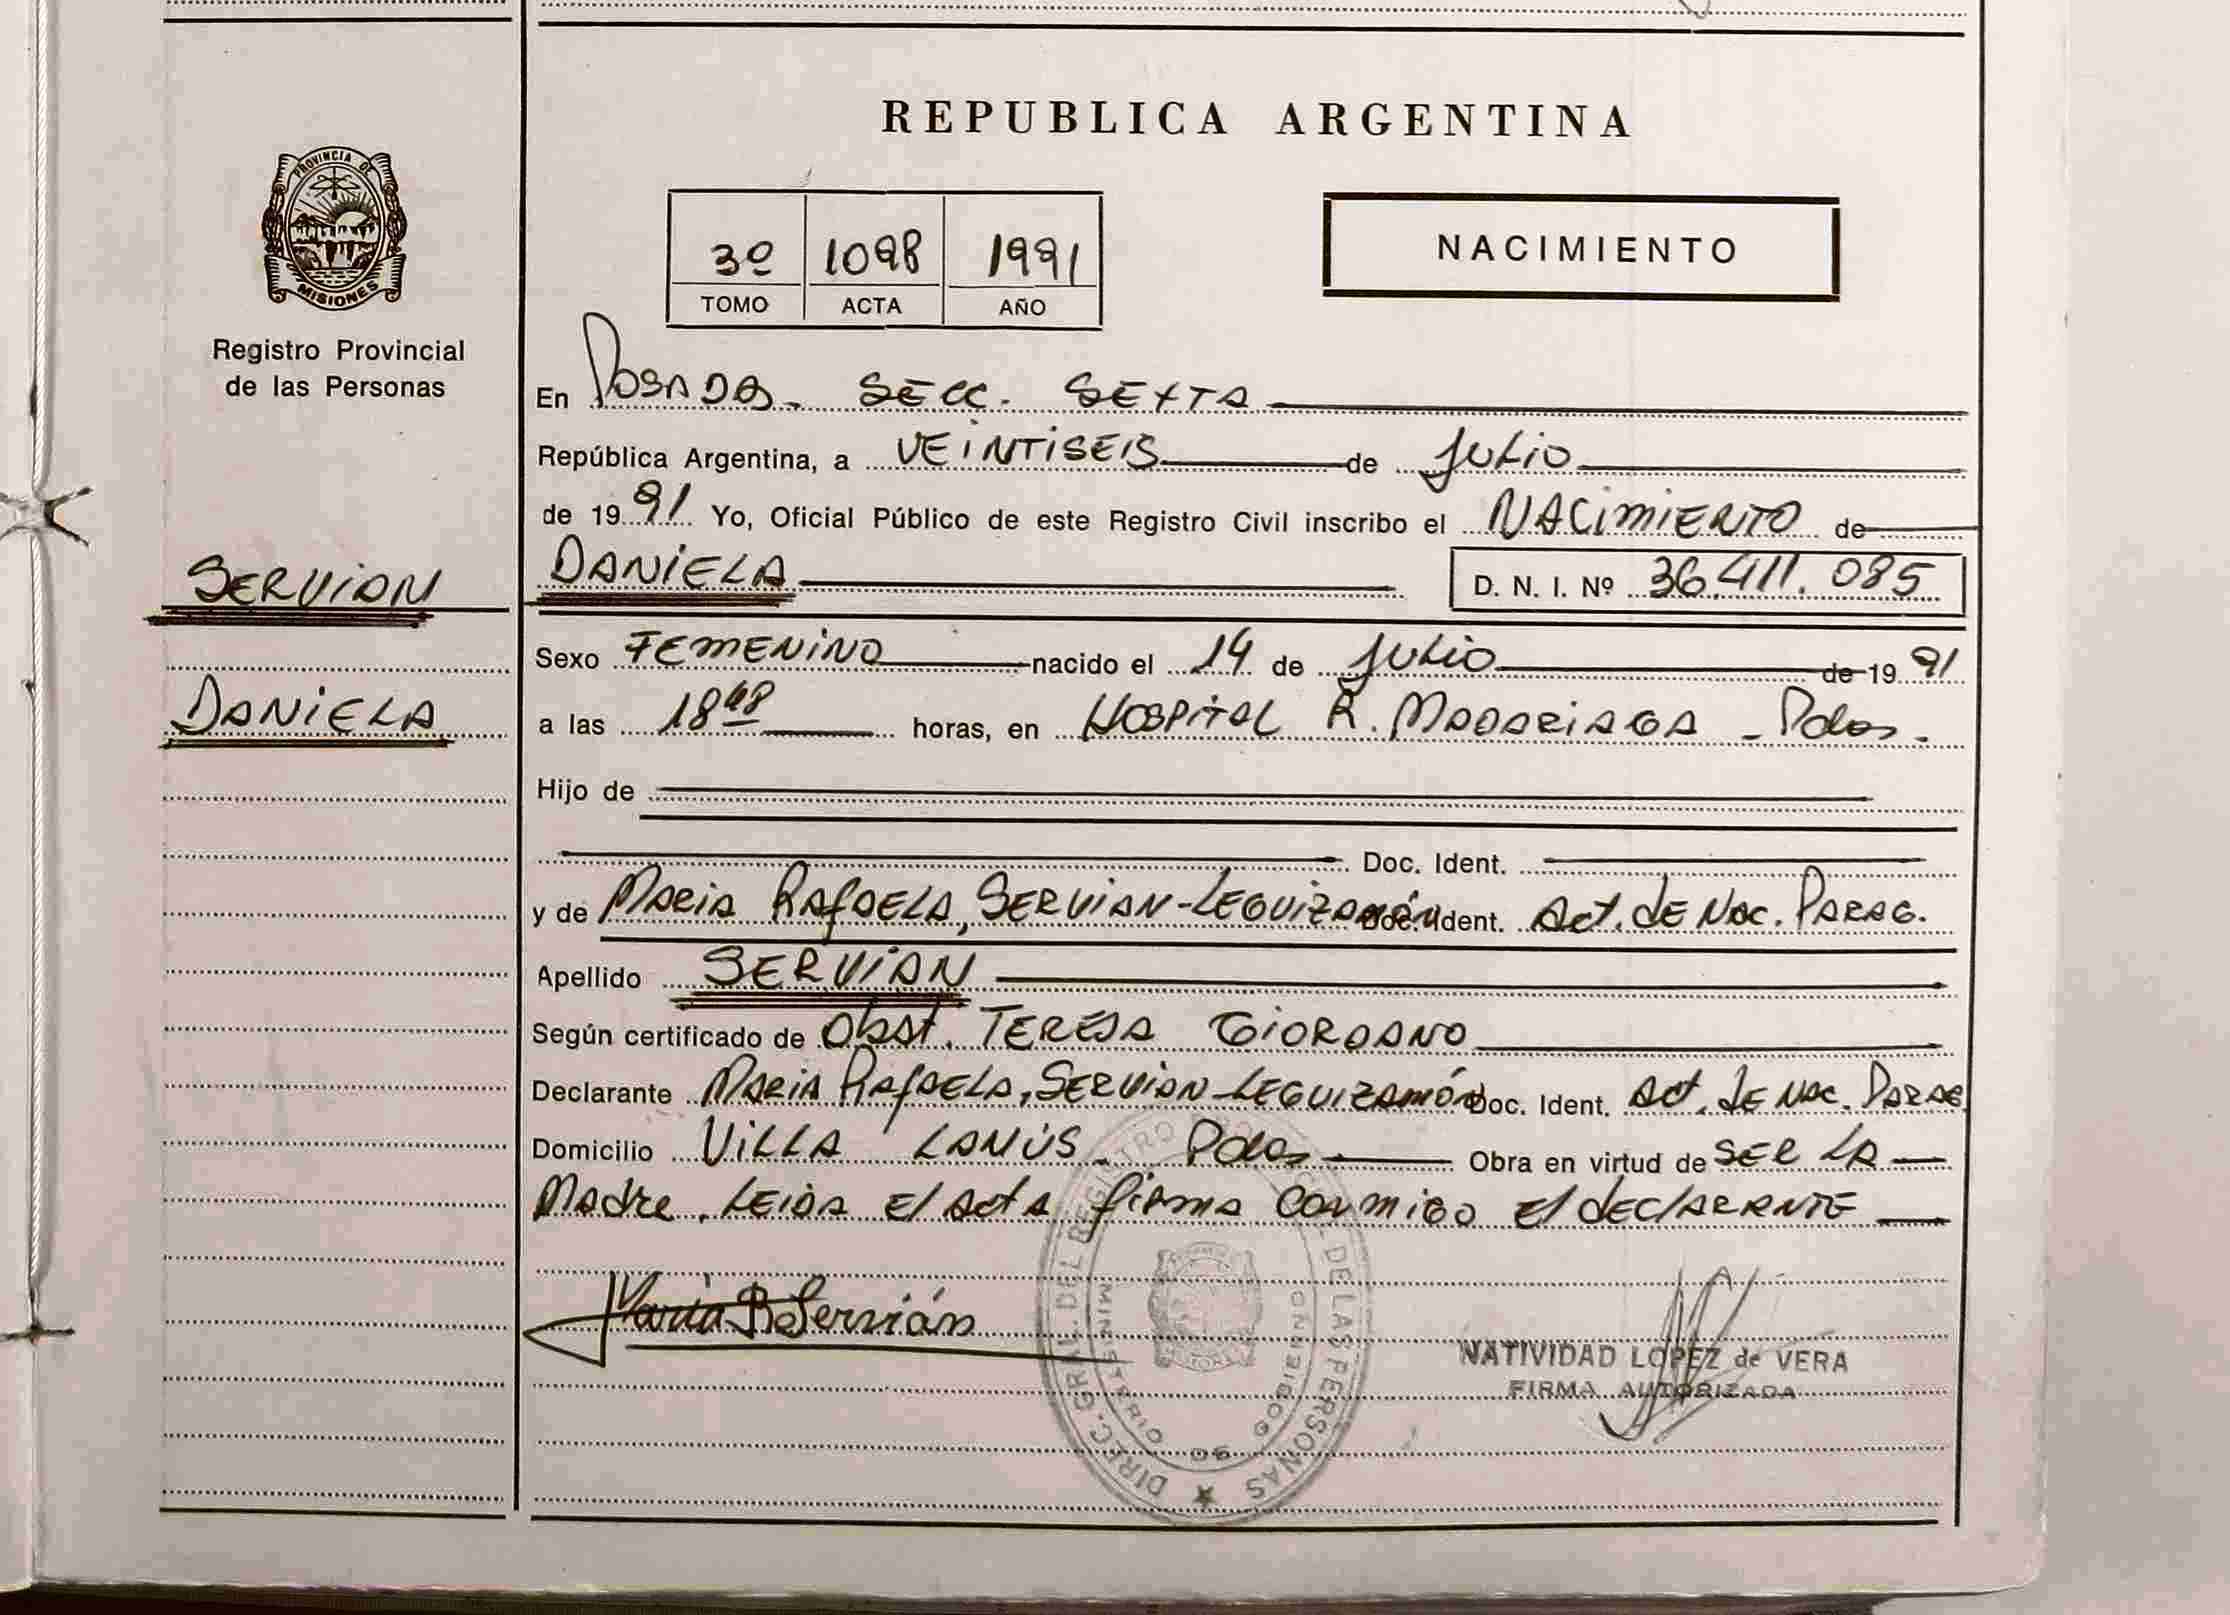 REPUBLICA ARGENTINA
PROVINCIA DE
MISIONES
Registro Provincial
de las Personas
3º 1098 1991
TOMO ACTA AÑO
NACIMIENTO
En Posadas. Secc. Sexta
República Argentina, a VEINTISEIS de Julio
de 1991 Yo, Oficial Público de este Registro Civil inscribo el NACIMIENTO de
SERVIAN
DANIELA D. N. I. Nº 36.411.085
Sexo FEMENINO nacido el 14 de Julio de 1991
DANIELA
a las 18 48 horas, en Hospital R. Madariaga - Pdas.
Hijo de
Doc. Ident.
y de Maria Rafaela, Servian-Leguizamón Doc. Ident. Act. de Nac. Parag.
Apellido SERVIAN
Según certificado de Obst. Teresa Giordano
Declarante Maria Rafaela, Servian-Leguizamón Doc. Ident. Act. de Nac. Parag.
Domicilio Villa Lanús. Pdas Obra en virtud de ser la
Madre. Leida el acta firma conmigo el declarante
Maria R. Servián
NATIVIDAD LOPEZ de VERA
FIRMA AUTORIZADA
DIREC. GRAL. DEL REGISTRO DE LAS PERSONAS
MINISTERIO DE GOBIERNO